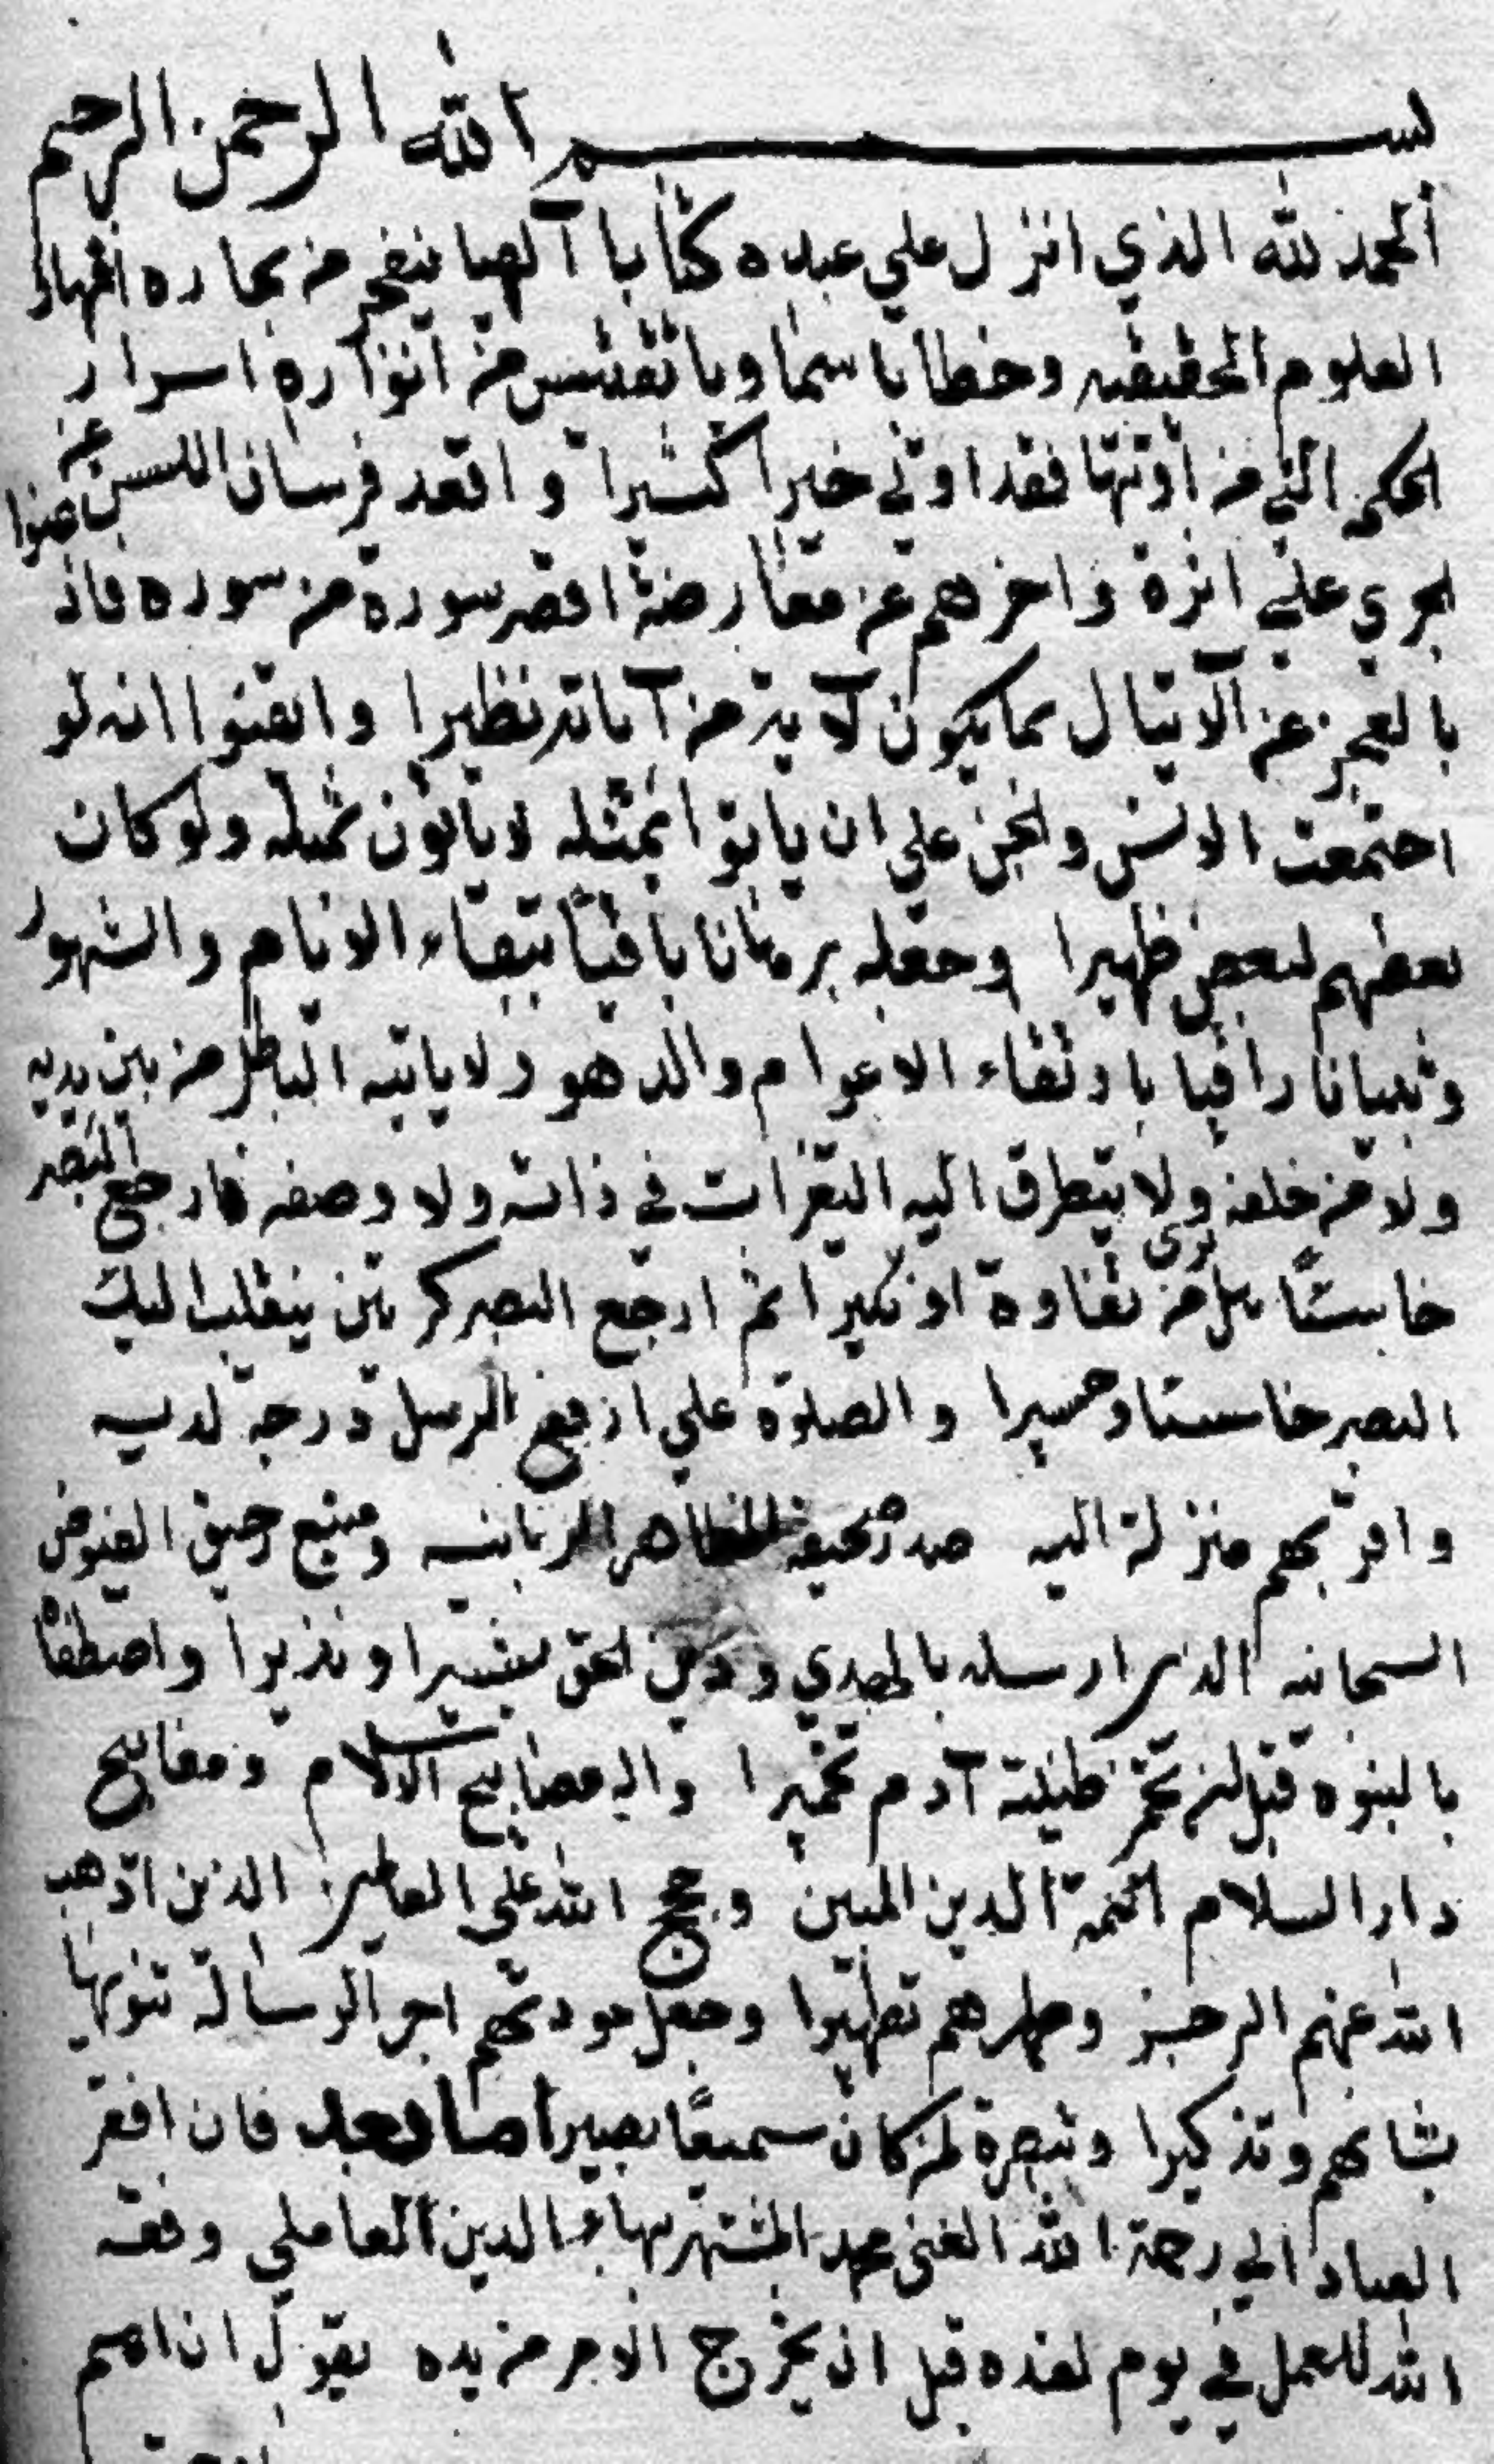 بسم الله الرحمن الرحيم
الحمد لله الذي انزل علي عبده كتابا آلهيا ينفجر من بحاره انهار
العلوم الحقيقيه وخطابا سماويا تقتبس من انواره اسرار
الحكمه التي من اوتيها فقد اوتي خيرا كثيرا واقعد فرسان اللسن عن
الجري علي اثره واخرهم عن معارضة اقصر سورة من سوره فاذعنوا
بالعجز عن الاتيان بما يكون لآية من آياته نظيرا وايقنوا انه لو
اجتمعت الانس والجن علي ان ياتوا بمثله لا ياتون بمثله ولو كان
بعضهم لبعض ظهيرا وجعله برهانا باقيا ببقاء الايام والشهور
وتبيانا راقيا بارتقاء الاعوام والدهور لا ياتيه الباطل من بين يديه
ولا من خلفه ولا يتطرق اليه التغيرات في ذاته ولا وصفه فارجع البصر
خاسئا هل تري من تفاوة او نكيرا ثم ارجع البصر كرتين ينقلب اليك
البصر خاسئا وحسيرا والصلوة علي ارفع الرسل درجة لديه
واقربهم منزلة اليه صدر صحيفة المظاهر الربانيه ومنبع رحيق الفيوض
السبحانيه الذي ارسله بالهدي ودين الحق بشيرا ونذيرا واصطفاه
بالنبوة قبل ان تخمر طينة آدم تخميرا واله مصابيح الاسلام ومفاتيح
دار السلام ائمة الدين المبين وحجج الله علي العالمين الذين اذهب
الله عنهم الرجس وطهرهم تطهيرا وجعل مودتهم اجر الرسالة تنويها
بشانهم وتذكيرا وتبصرة لمن كان سميعا بصيرا اما بعد فان افقر
العباد الي رحمة الله الغني محمد المشتهر ببهاء الدين العاملي وفقه
الله للعمل في يوم لغده قبل ان يخرج الامر من يده يقول ان اهم